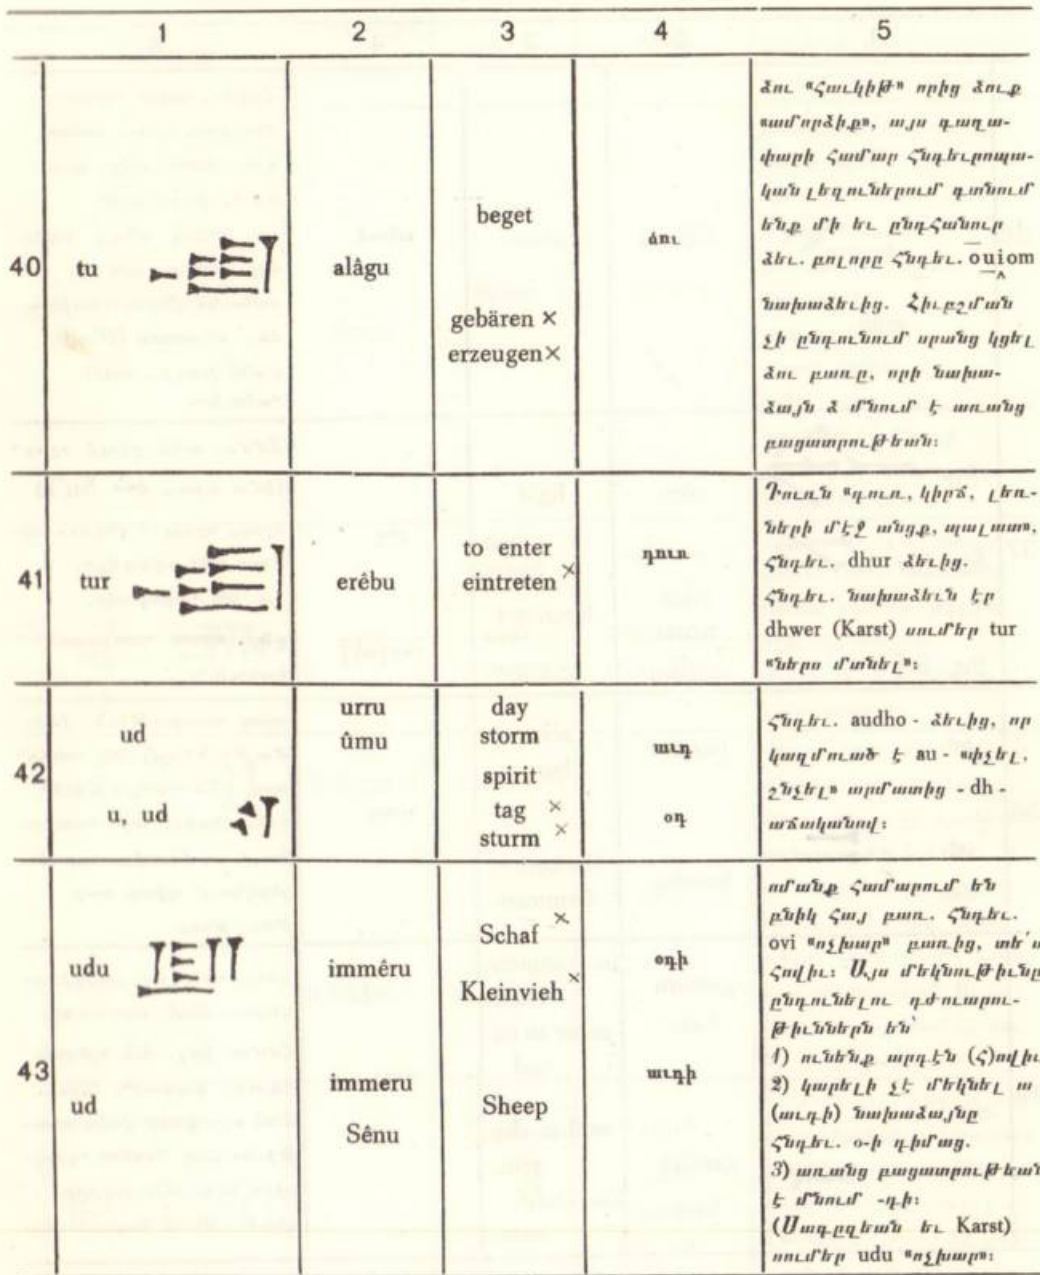 1 2 3 4 5
40 tu alâgu
beget
gebären ×
erzeugen ×
ձու
ձու "հաւկիթ" որից ձուք
"ամորձիք", այս գաղա-
փարի համար հնդեւրոպա-
կան լեզուներում գտնում
ենք մի եւ ընդհանուր
ձեւ. բոլորը հնդեւ. ouiom
նախաձեւից. Հիւբշման
չի ընդունում սրանց կցել
ձու բառը, որի նախա-
ձայն ձ մնում է առանց
բացատրութեան:
41 tur erêbu
to enter
eintreten ×
դուռ
Դուռն "դուռ, կիրճ, լեռ-
ների մէջ անցք, պալատ",
հնդեւ. dhur ձեւից.
հնդեւ. նախաձեւն էր
dhwer (Karst) սումեր tur
"ներս մտնել":
42
ud
u, ud
urru
ûmu
day
storm
spirit
tag ×
sturm ×
աւդ
օդ
հնդեւ. audho - ձեւից, որ
կազմուած է au - "փչել,
շնչել" արմատից - dh -
աճականով:
43
udu
ud
immêru
immeru
Sênu
Schaf ×
Kleinvieh ×
Sheep
օդի
աւդի
ոմանք համարում են
բնիկ հայ բառ. հնդեւ.
ovi "ոչխար" բառից, տե՛ս
հովիւ: Այս մեկնութիւնը
ընդունելու դժուարու-
թիւններն են՝
1) ունենք արդէն (հ)ովիւ
2) կարելի չէ մեկնել ա
(աւդի) նախաձայնը
հնդեւ. օ-ի դիմաց.
3) առանց բացատրութեան
է մնում -դի:
(Սագըզեան եւ Karst)
սումեր udu "ոչխար":